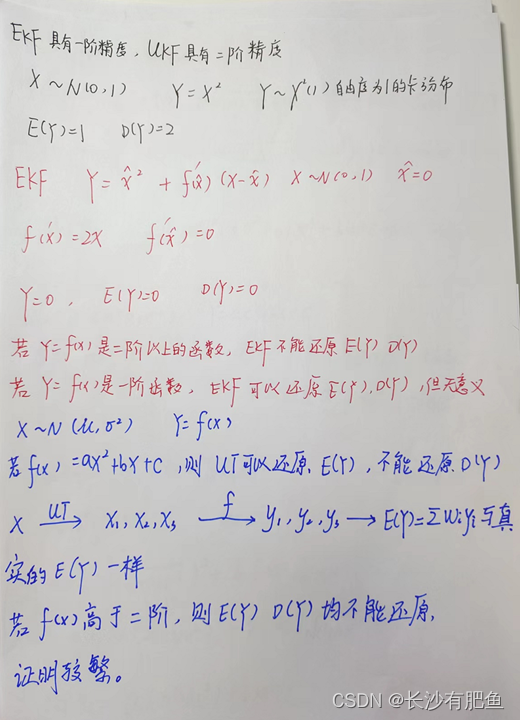 EKF 具有一阶精度，UKF具有二阶精度
X ~ N(0, 1)    Y = X²    Y ~ χ²(1) 自由度为1的卡方分布
E(Y)=1    D(Y)=2
EKF    Y = x̂² + f'(x̂)(X-x̂)    X~N(0,1)    x̂=0
f'(x) = 2X    f'(x̂) = 0
Y=0,    E(Y)=0    D(Y)=0
若 Y=f(x) 是二阶以上的函数，EKF不能还原E(Y) D(Y)
若 Y=f(x) 是一阶函数，EKF可以还原E(Y),D(Y),但无意义
X~N(μ,σ²)    Y=f(x)
若f(x)=ax²+bx+c,则 UT可以还原E(Y),不能还原D(Y)
X —UT→ X₁, X₂, X₃ —f→ y₁, y₂, y₃ → E(Y)=Σwᵢyᵢ与真
实的E(Y)一样
若f(x)高于二阶，则E(Y) D(Y)均不能还原，
证明较繁。
CSDN @长沙有肥鱼